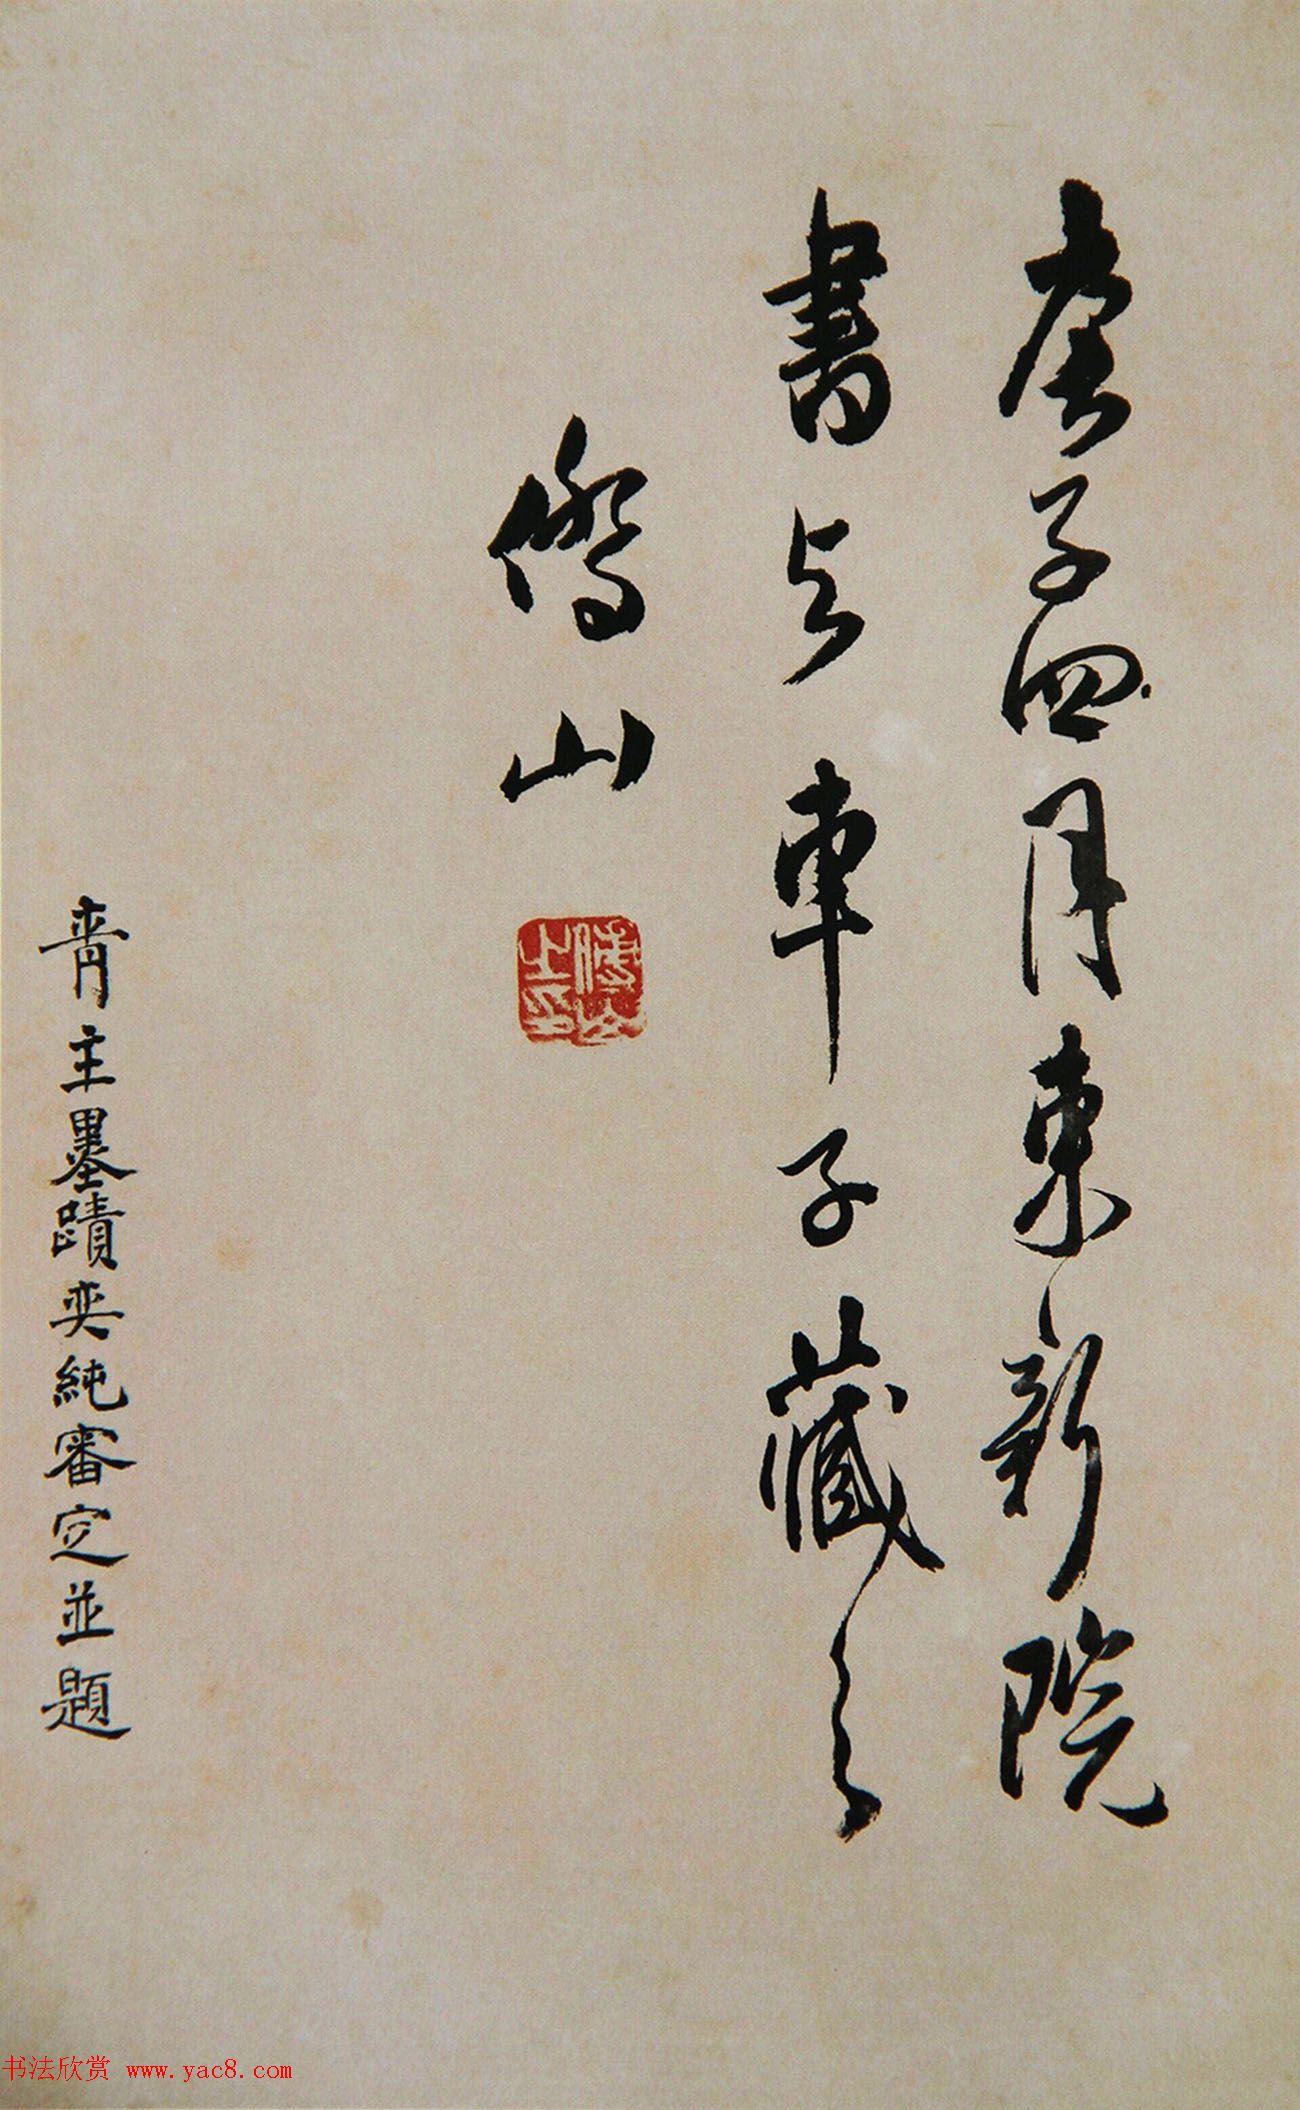 庚子四月東新院
書与車子藏之
傅山
傅山之印
青主墨蹟奕純審定並題
书法欣赏 www.yac8.com